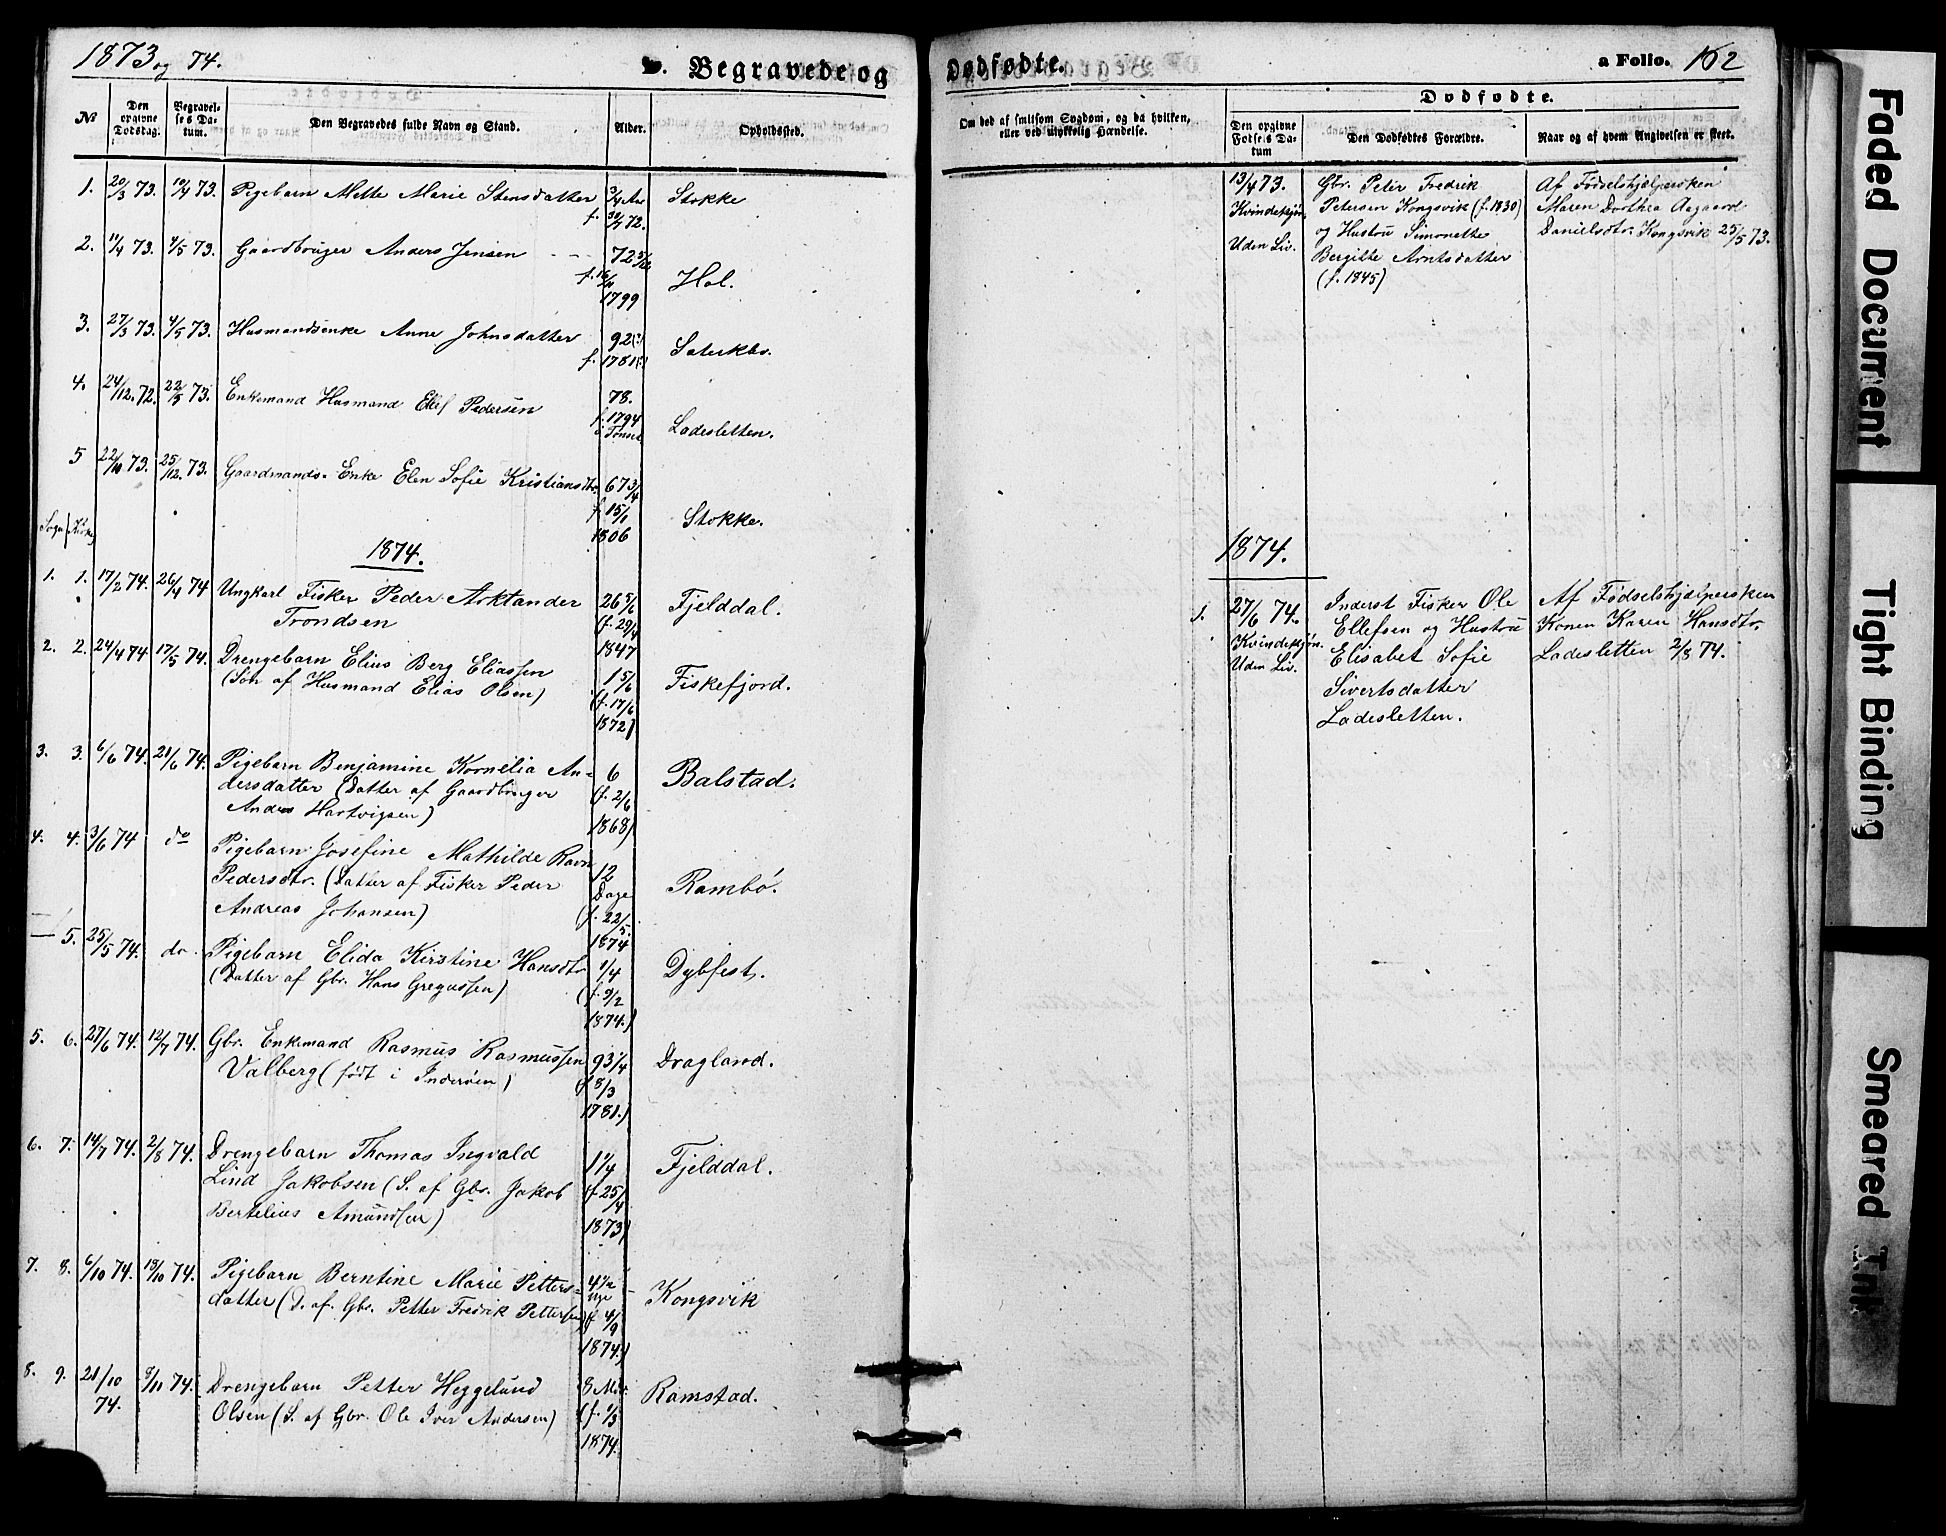 1873 og 74.
D. Begravede og
Dødfødte.
a Folio. 162
No
Den opgivne Dødsdag.
Begravelses Datum.
Den Begravedes fulde Navn og Stand.
Alder.
Opholdssted.
Om død af smitsom Sygdom, og da hvilken, eller ved ulykkelig Hændelse.
Dødfødte.
Den opgivne Fødsels Datum
Den Dødfødtes Forældre.
Naar og af hvem Angivelsen er skeet.
1. 20/3 73. 10/4 73. Pigebarn Mette Marie Stensdatter 3/4 Aar Stokke
f. 30/7 72.
2. 11/4 73. 4/5 73. Gaardbruger Anders Jensen 72 5/12 Hol.
f. 16/11
1799
3. 27/3 73. 4/5 73. Husmandsenke Anne Johnsdatter 92(?)
f. 1781(?)
4. 24/12. 72. 22/5 73. Enkemand Husmand Ellef Pedersen 78. Ladesletten.
f. 1794
5 22/10 73. 25/12. 73. Gaardmands-Enke Elen Sofie Kristiansdtr. 67 3/4 Stokke.
f. 15/1
1806
Sogn Kirke
1874.
1. 1. 17/2 74. 26/4 74 Ungkarl Fisker Peder Arktander 26 5/6 Fjelddal.
Trondsen (f. 29/4
1847
2. 2. 24/4 74 17/5 74. Drengebarn Elius Berg Eliassen 1 5/6 Fiskefjord.
(Søn af Husmand Elias Olsen) (f. 17/6
1872)
3. 3. 6/6 74. 21/6 74. Pigebarn Benjamine Kornelia An- 6 Balstad.
dersdatter (Datter af Gaardbruger (f. 2/6
Anders Hartvigsen) 1868)
4. 4. 3/6 74 do Pigebarn Josefine Mathilde Ravn 12 Rambø.
Pedersdtr. (Datter af Fisker Peder Dage
Andreas Johansen) (f. 22/5.
1874
— 5. 25/5 74. do. Pigebarn Elida Kirstine Hansdtr 1/4 Dybfest.
(Datter af Gbr. Hans Gregussen) (f. 9/2
1874.)
5. 6. 27/6 74. 12/7 74. Gbr. Enkemand Rasmus Rasmussen 93 1/4 Dragland.
Valberg (født i Inderøen) (f 8/3
1781.)
6. 7. 14/7 74. 2/8 74. Drengebarn Thomas Ingvald 1 1/4 Fjelddal.
Lind Jakobsen (S. af Gbr. Jakob (f 25/4
Bertelius Amundsen) 1873)
7. 8. 6/10 74. 18/10 74. Pigebarn Berntine Marie Petters- 4 1/2 Uge Kongsvik
datter (D. af. Gbr. Petter Fredrik Pettersen) (f 4/9
1874.)
8. 9. 21/10 74. 8/11 74. Drengebarn Petter Heggelund 8 Md. Ramstad.
Olsen (S. af Gbr. Ole Iver Andersen) (f. 1/3
1874.
13/4 73. Gbr. Peter Fredrik Af Fødselshjælpersken
Kvindekjøn. Petersen Kongsvik (f. 1830) Maren Dorthea Aagaard
Uden Liv. og Hustru Simonette Danielsdtr. Kongsvik 25/5 73.
Bergitte Arntsdatter
(f. 1845)
1874.
1. 27/6 74. Inderst Fisker Ole Af Fødselshjælpersken
Kvindekjøn. Ellefsen og Hustru Konen Karen Hansdtr.
Uden Liv. Elisabet Sofie Ladesletten 2/8 74.
Sivertsdatter
Ladesletten.
Faded Document
Tight Binding
Smeared Ink